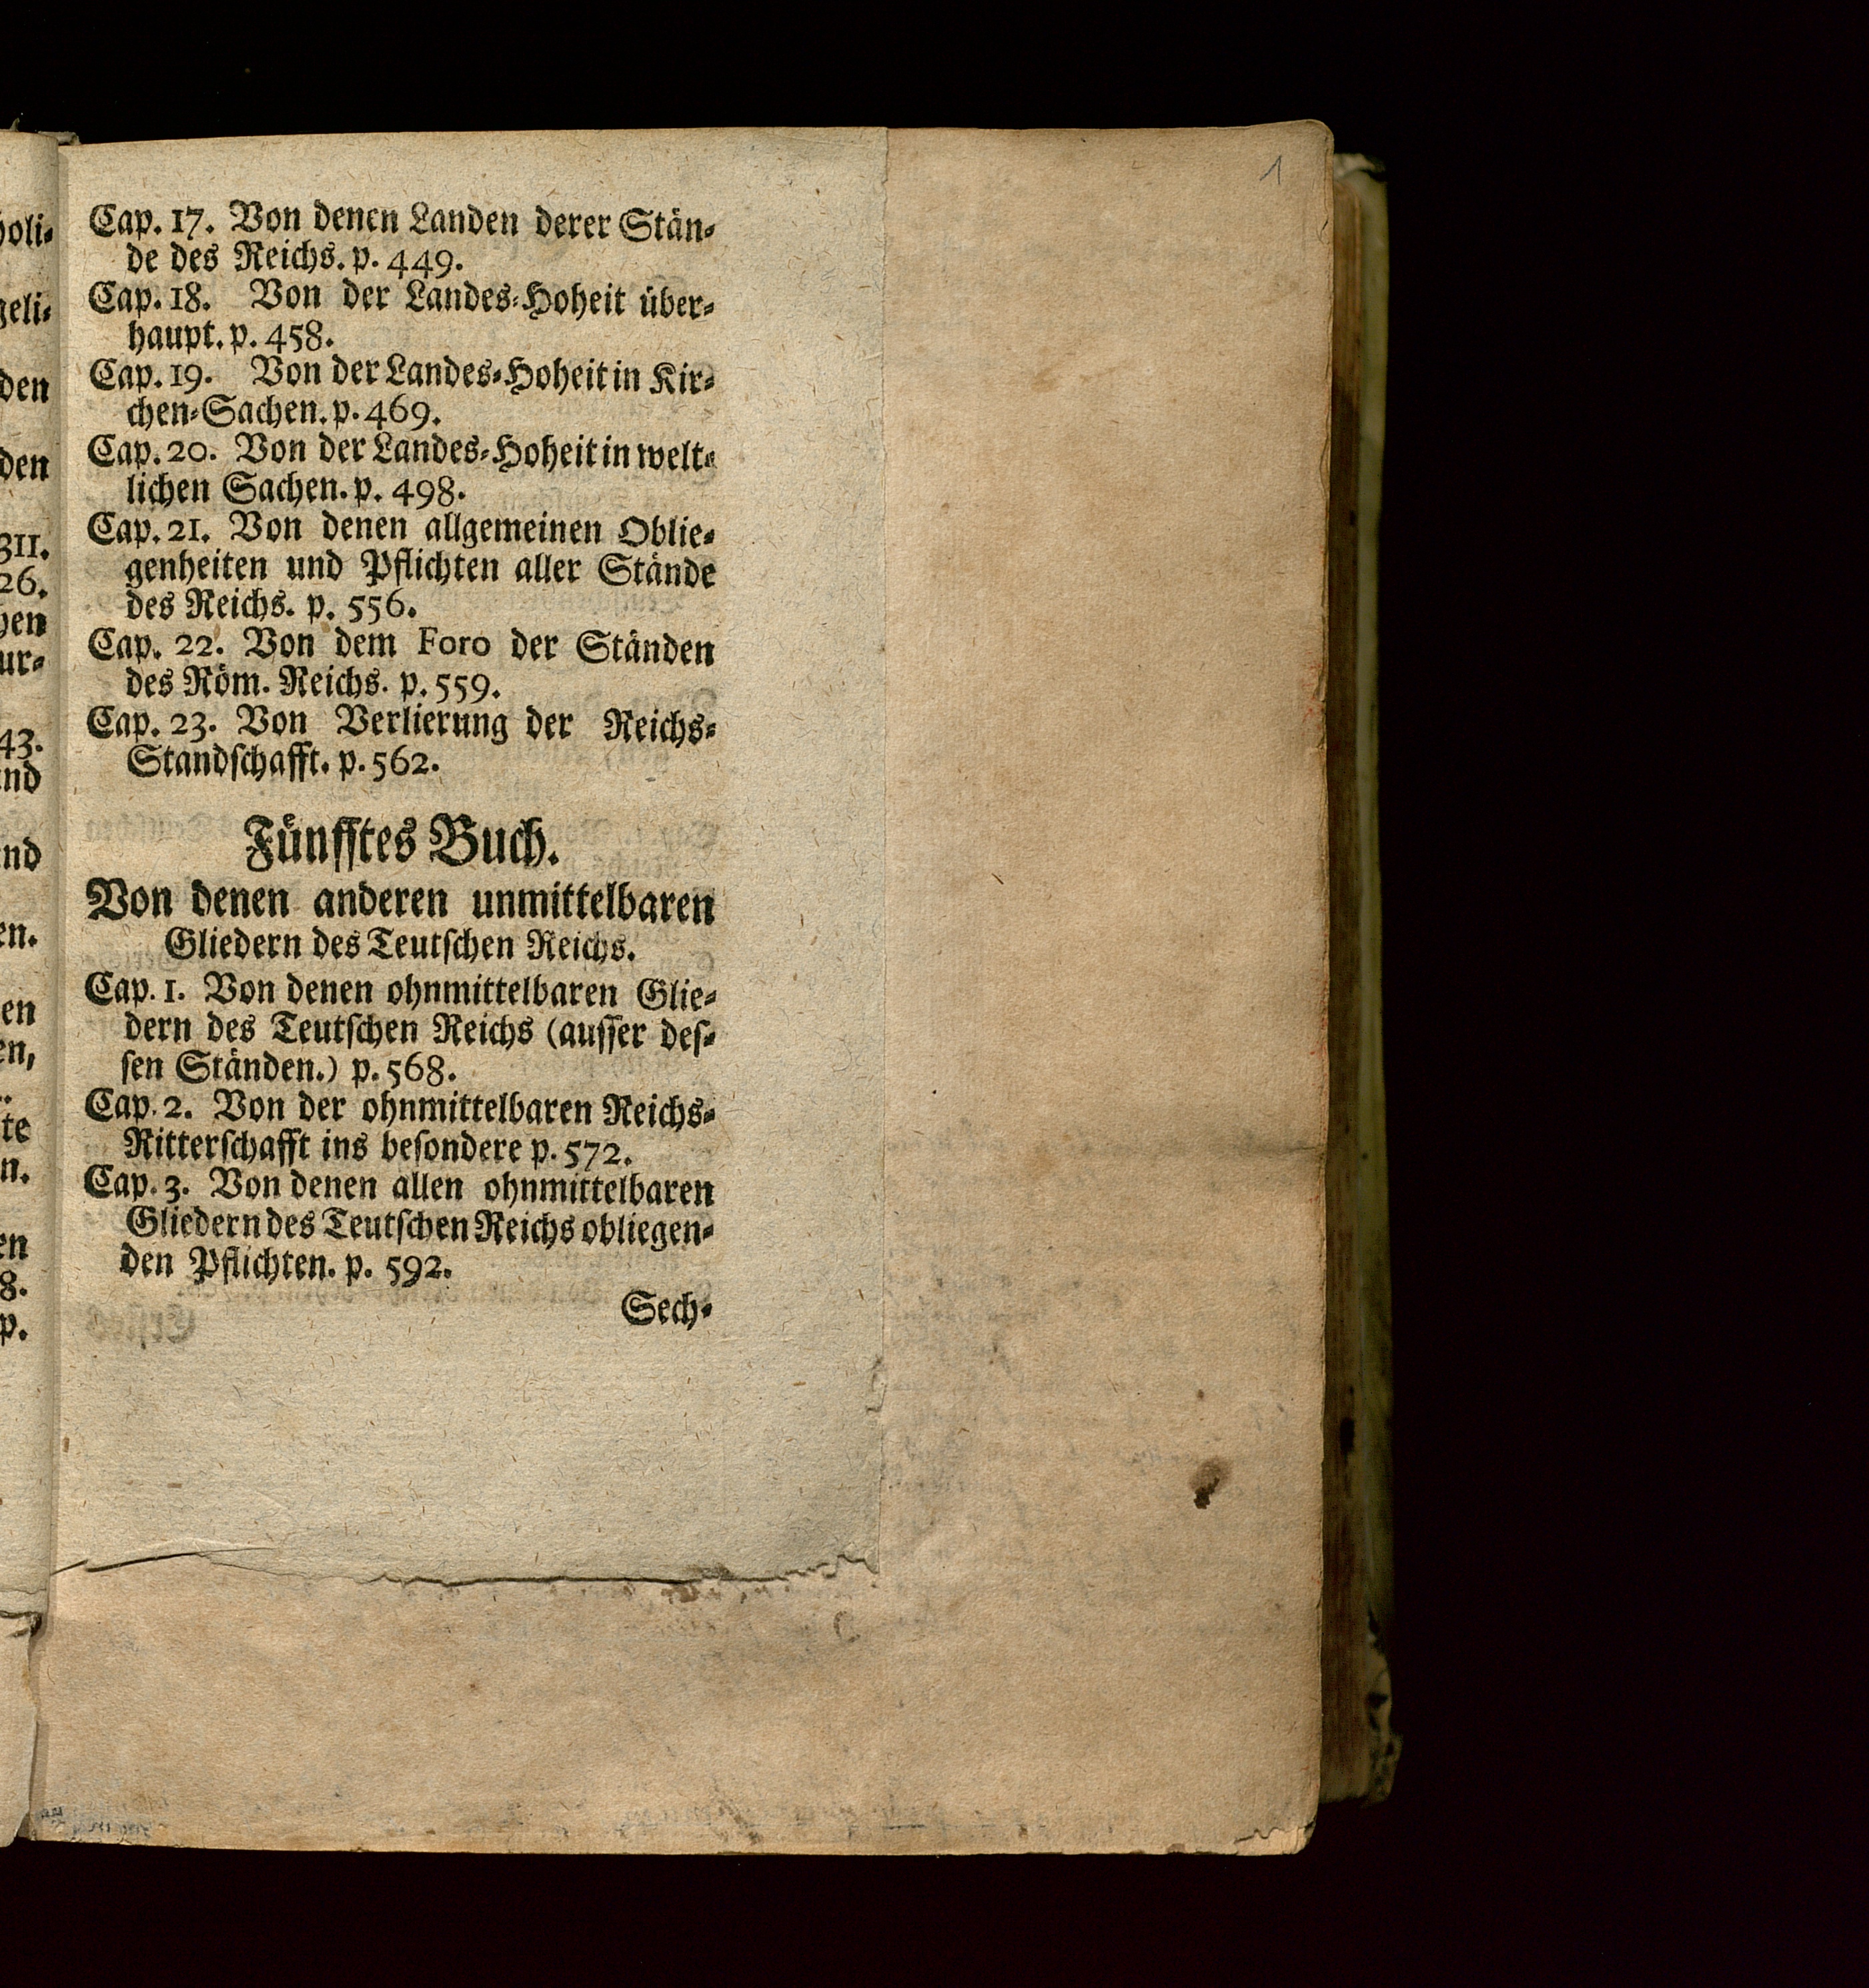 1
Cap. 17. Von denen Landen derer Stän-
de des Reichs. p. 449.
Cap. 18. Von der Landes-Hoheit über-
haupt. p. 458.
Cap. 19. Von der Landes-Hoheit in Kir-
chen-Sachen. p. 469.
Cap. 20. Von der Landes-Hoheit in welt-
lichen Sachen. p. 498.
Cap. 21. Von denen allgemeinen Oblie-
genheiten und Pflichten aller Stände
des Reichs. p. 556.
Cap. 22. Von dem Foro der Ständen
des Röm. Reichs. p. 559.
Cap. 23. Von Verlierung der Reichs-
Standschafft. p. 562.
Fünfftes Buch.
Von denen anderen unmittelbaren
Gliedern des Teutschen Reichs.
Cap. 1. Von denen ohnmittelbaren Glie-
dern des Teutschen Reichs (ausser des-
sen Ständen.) p. 568.
Cap. 2. Von der ohnmittelbaren Reichs-
Ritterschafft ins besondere p. 572.
Cap. 3. Von denen allen ohnmittelbaren
Gliedern des Teutschen Reichs obliegen-
den Pflichten. p. 592.
Sech-